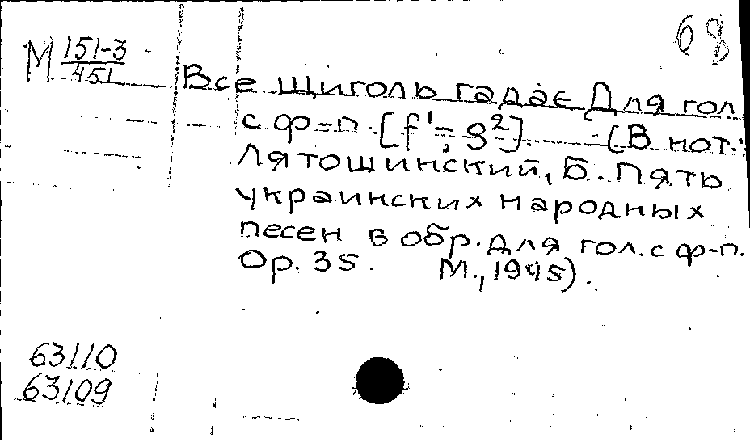 68
М 151-3
451
Все щиголь гадає Для гол.
с ф-п. [f'; g²] (В нот.:
Лятошинский, Б. Пять
украинских народных
песен в обр. для гол. с ф-п.
Op. 35. М., 1945).
63110
63109